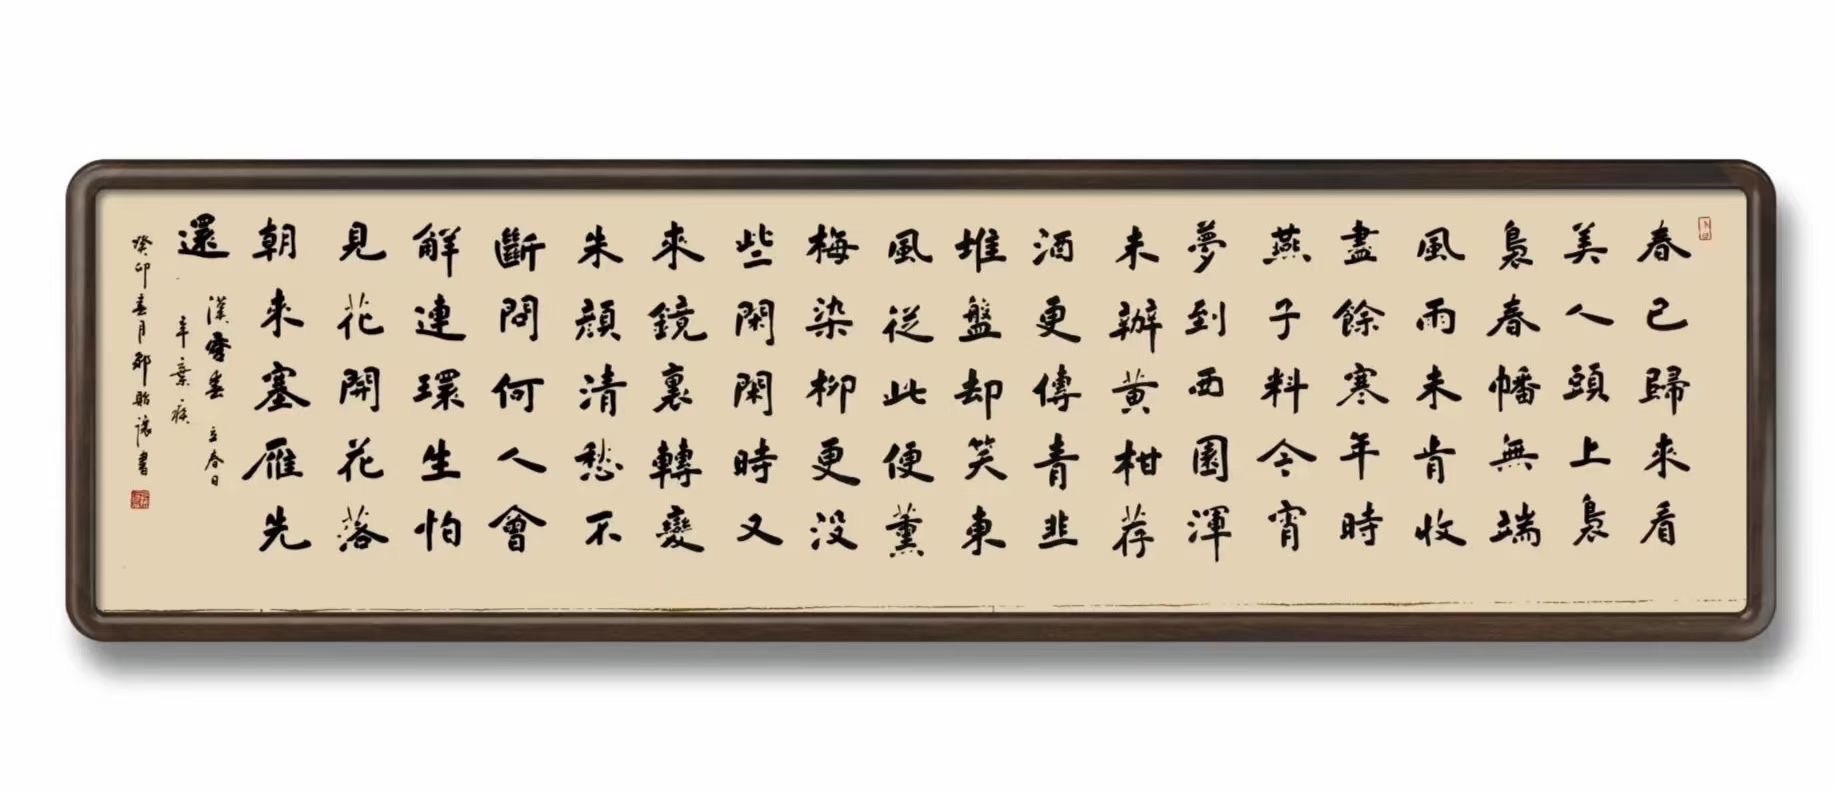 春已歸來看
美人頭上裊
裊春幡無端
風雨未肯收
盡餘寒年時
燕子料今宵
夢到西園渾
未辦黄柑荐
酒更傳青韭
堆盤却笑東
風從此便薰
梅染柳更没
些閑閑時又
來鏡裏轉變
朱顔清愁不
斷問何人會
解連環生怕
見花開花落
朝來塞雁先
還
漢宮春 立春日
辛棄疾
癸卯春月 書